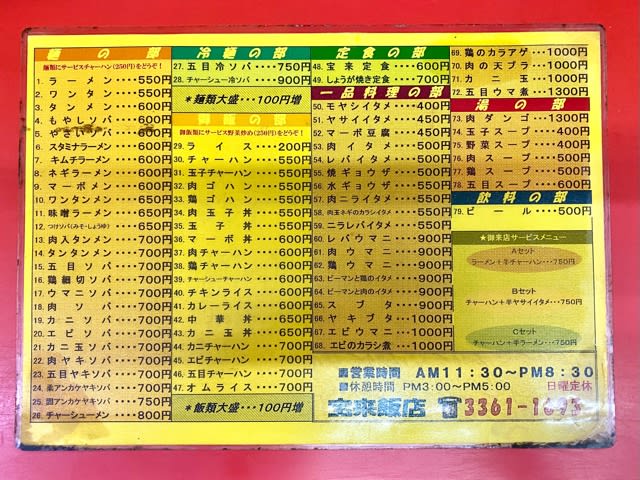 麺の部
麺類にサービスチャーハン(250円)をどうぞ!
1. ラーメン・・・550円
2. ワンタン・・・550円
3. タンメン・・・600円
4. もやしソバ・・・600円
5. やさいソバ・・・600円
6. スタミナラーメン・・・600円
7. キムチラーメン・・・600円
8. ネギラーメン・・・600円
9. マーボメン・・・600円
10. ワンタンメン・・・650円
11. 味噌ラーメン・・・650円
12. つけソバ(みそ・しょうゆ)・・・650円
13. 肉入タンメン・・・700円
14. タンタンメン・・・700円
15. 五目ソバ・・・700円
16. 鶏細切ソバ・・・700円
17. ウマニソバ・・・700円
18. 肉ソバ・・・700円
19. カニソバ・・・700円
20. エビソバ・・・700円
21. カニ玉ソバ・・・700円
22. 肉ヤキソバ・・・700円
23. 五目ヤキソバ・・・700円
25. 調アンカケヤキソバ・・・750円
26. チャーシューメン・・・800円
冷麺の部
27. 五目冷ソバ・・・750円
28. チャーシュー冷ソバ・・・900円
*麺類大盛・・・100円増
御飯の部
御飯類にサービス野菜炒め(250円)をどうぞ!
29. ライス・・・200円
30. チャーハン・・・550円
31. 玉子チャーハン・・・550円
32. 肉ゴハン・・・550円
33. 鶏ゴハン・・・550円
34. 肉玉子丼・・・550円
35. 玉子丼・・・550円
36. マーボ丼・・・600円
37. 肉チャーハン・・・600円
38. 鶏チャーハン・・・600円
39. チャーシューチャーハン・・・600円
40. チキンライス・・・600円
41. カレーライス・・・600円
42. 中華丼・・・650円
43. カニ玉丼・・・650円
44. カニチャーハン・・・700円
45. エビチャーハン・・・700円
46. 五目チャーハン・・・700円
47. オムライス・・・700円
*飯類大盛・・・100円増
定食の部
48. 宝来定食・・・600円
49. しょうが焼き定食・・・700円
一品料理の部
50. モヤシイタメ・・・400円
51. ヤサイイタメ・・・450円
52. マーボ豆腐・・・450円
53. 肉イタメ・・・500円
54. レバイタメ・・・500円
55. 焼ギョウザ・・・500円
56. 水ギョウザ・・・500円
57. 肉ニライタメ・・・550円
58. 肉玉ネギのカラシイタメ・・・550円
59. ニラレバイタメ・・・550円
60. レバウマニ・・・900円
61. 肉ウマニ・・・900円
62. 鶏ウマニ・・・900円
63. ピーマンと鶏のイタメ・・・900円
64. ピーマンと肉のイタメ・・・900円
65. スブタ・・・900円
66. ヤキブタ・・・1000円
67. エビウマニ・・・1000円
68. エビのカラシ煮・・・1000円
69. 鶏のカラアゲ・・・1000円
70. 肉の天プラ・・・1000円
71. カニ玉・・・1000円
72. 五目ウマ煮・・・1300円
湯の部
73. 肉ダンゴ・・・1300円
74. 玉子スープ・・・400円
75. 野菜スープ・・・400円
76. 肉スープ・・・500円
77. 鶏スープ・・・500円
78. 五目スープ・・・600円
飲料の部
79. ビール・・・500円
★御来店サービスメニュー
Aセット
ラーメン+半チャーハン・・・750円
Bセット
チャーハン+半ヤサイイタメ・・・750円
Cセット
チャーハン+半ラーメン・・・750円
■営業時間 AM11:30~PM8:30
■休憩時間 PM3:00~PM5:00 日曜定休
宝来飯店 ☎3361-1693